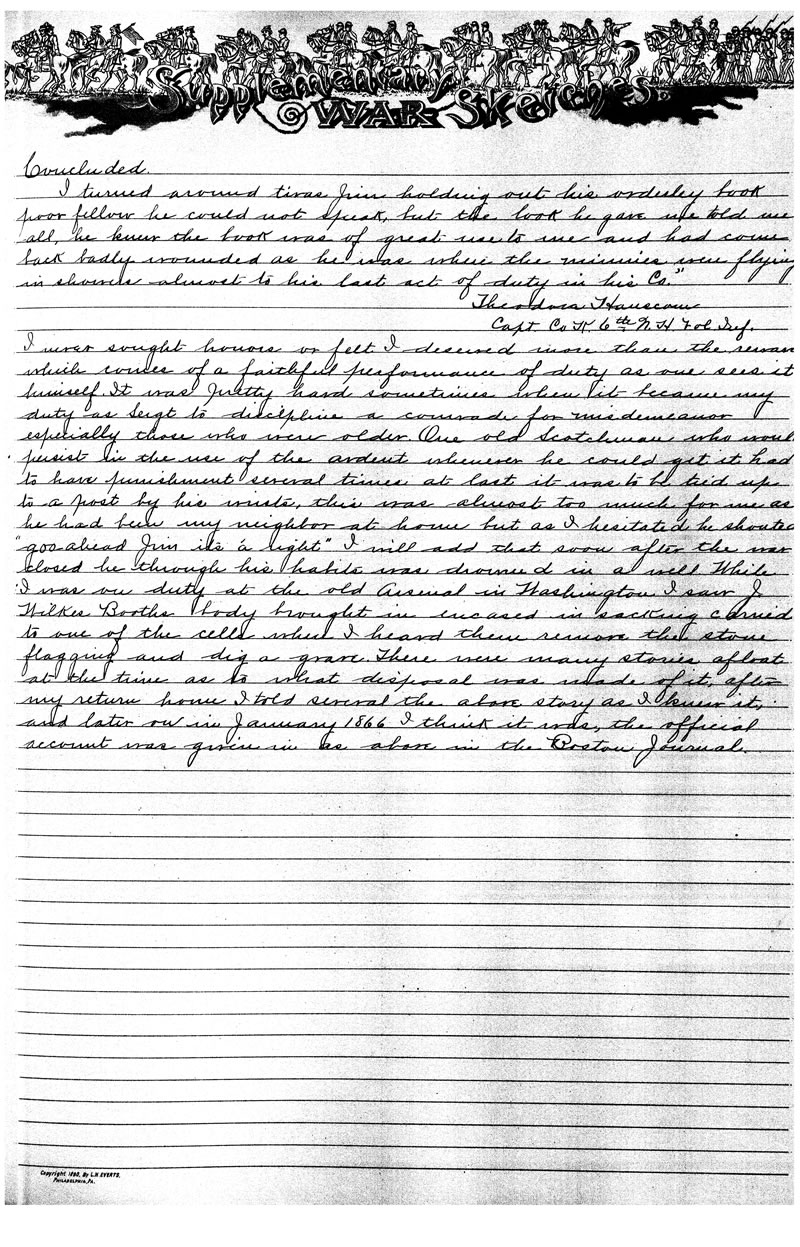 Supplementary
WAR Sketches
Concluded.
I turned around twas Jim holding out his orderley book
poor fellow he could not speak, but the look he gave me told me
all, he knew the book was of great use to me and had come
back badly wounded as he was when the minnies were flying
in showers almost to his last act of duty in his Co."
Theodora Hanscom
Capt. Co K. 6th N H Vol Inf.
I never sought honors or felt I deserved more than the rewar
which comes of a faithful performance of duty as one sees it
himself. It was pretty hard sometimes when it became my
duty as Sergt to discipline a comrade for misdemeanor
especially those who were older. One old Scotchman who woul
persist in the use of the ardent whenever he could get it had
to have punishment several times at last it was to be tied up
to a post by his wrists, this was almost too much for me as
he had been my neighbor at home but as I hesitated he shouted
"goo ahead Jim its a' right" I will add that soon after the war
closed he through his habits was drowned in a well While
I was on duty at the old Arsenal in Washington I saw J
Wilkes Booths body brought in incased in sacking carried
to one of the cells when I heard them remove the stone
flagging and dig a grave. There were many stories afloat
at the time as to what disposal was made of it, after
my return home I told several the above story as I knew it,
and later on in January 1866 I think it was, the official
account was given in as above in the Boston Journal.
Copyright 1890, By L.H. EVERTS,
PHILADELPHIA, PA.